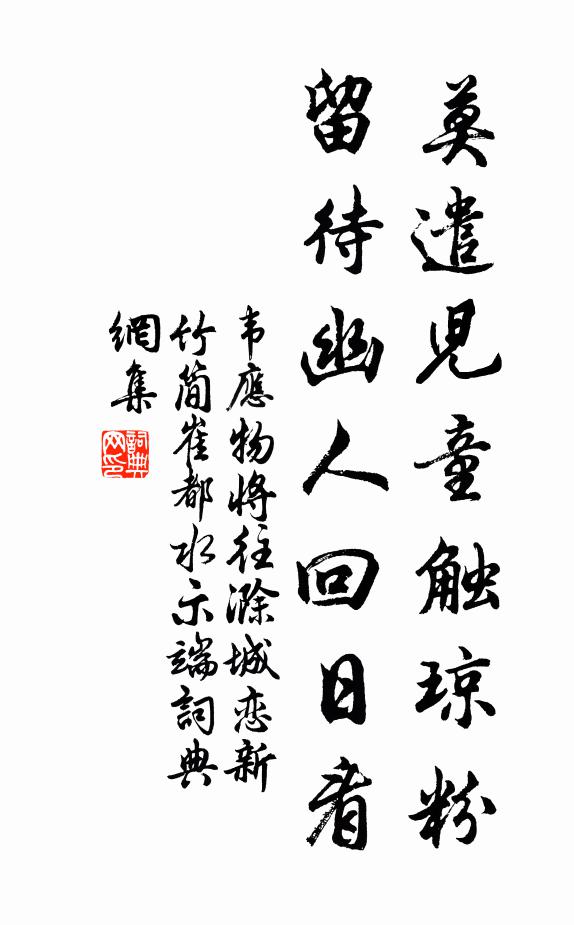 莫遣児童触琼粉
留待幽人回日看
韦應物将往滁城恋新
竹简崔都水示端詞典
網集
詞典网印